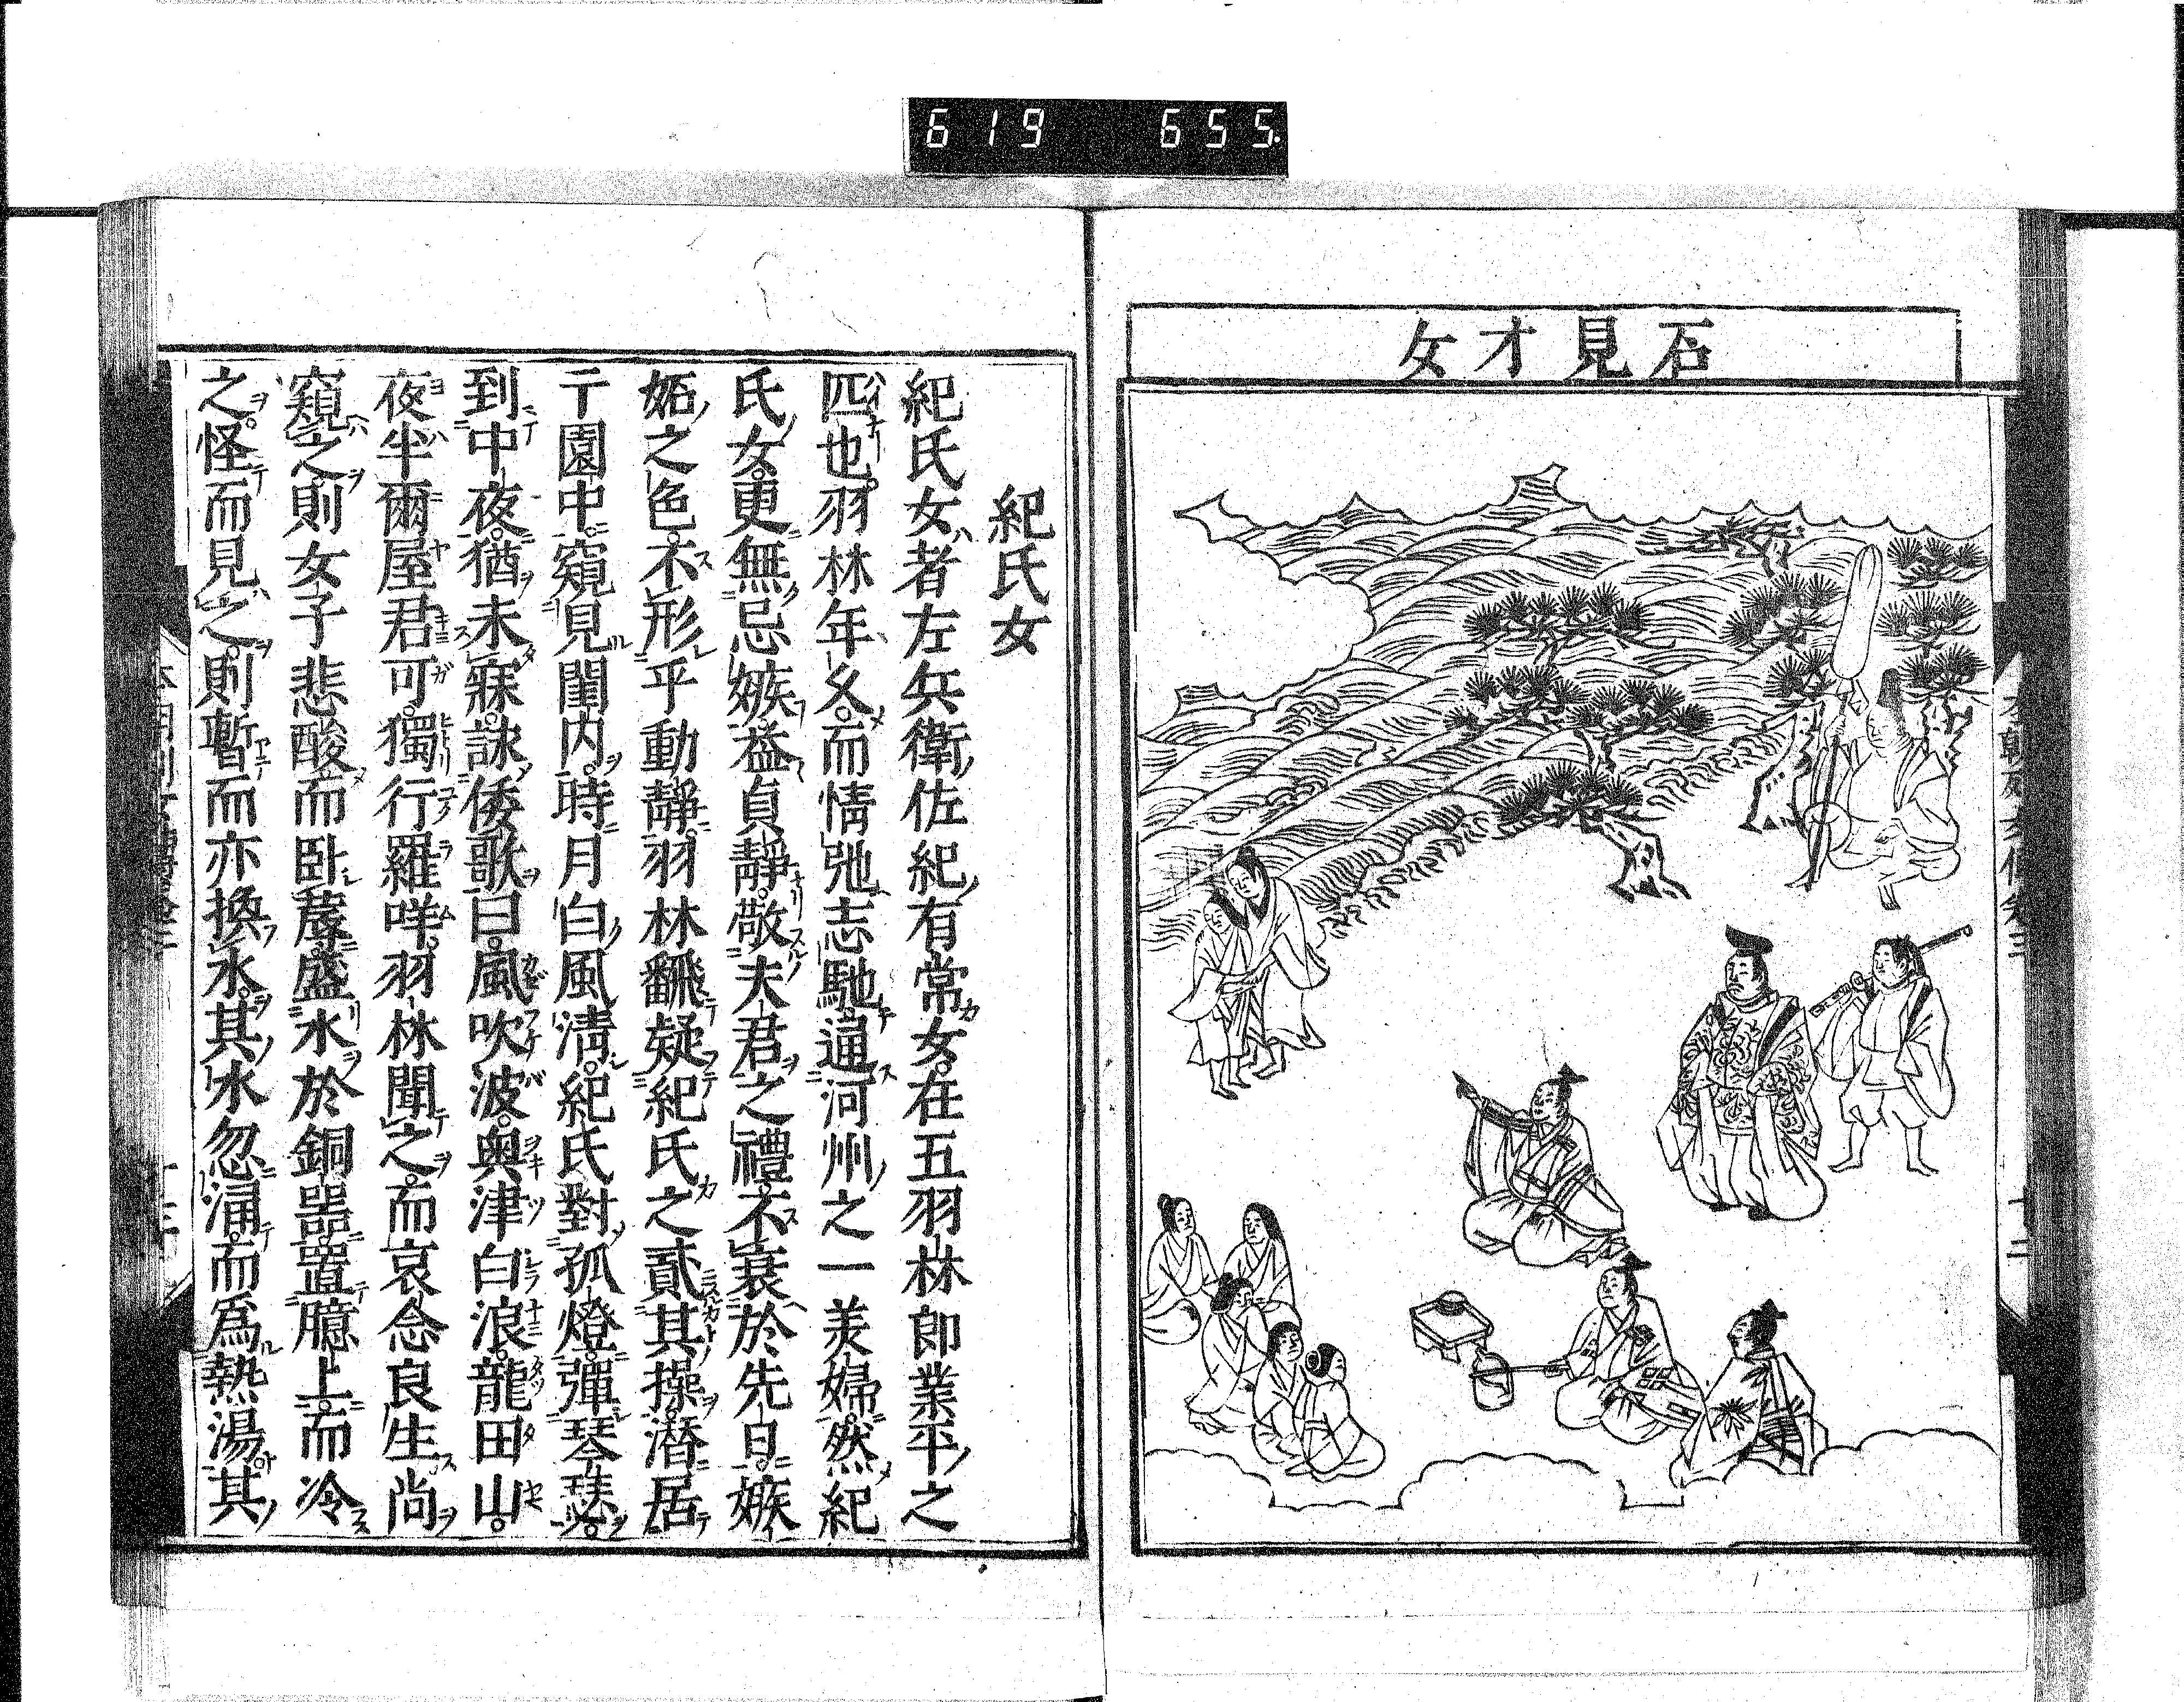 619 655.
石見才女
紀氏女
紀氏女者左兵衛佐紀有常女在五羽林郎業平之
匹也。羽林年久而情弛志馳通河州之一美婦。然紀
氏女更無忌嫉益貞靜。敬夫君之禮不衰於先日。嫉
妬之色不形乎動靜。羽林翻疑紀氏之貳其操。潜居
于園中。窺見閨内。時月白風淸。紀氏對孤燈彈琴瑟。
到中夜。猶未寐。詠倭歌曰。風吹波。奥津白浪。龍田山。
夜半爾屋君可。獨行羅咩。羽林聞之。而哀念良生尚
窺之則女子悲酸而臥。盛水於銅器置臆上。而冷
之。怪而見之。則暫而亦換水。其水忽涌而爲熱湯。其